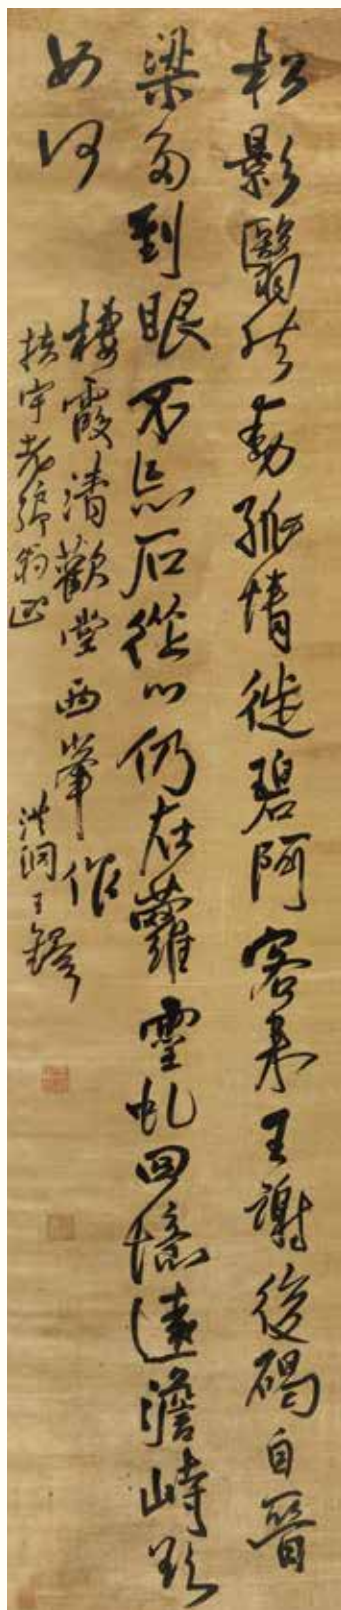 松影翳然動孤情徙碧阿客來王謝後碣自晉
梁多到眼不忘石從心仍在蘿靈虬回憶遠澹峙欲
如何
棲霞清歡堂西峯作
扶宇老鄉翁正 洪洞王鐸